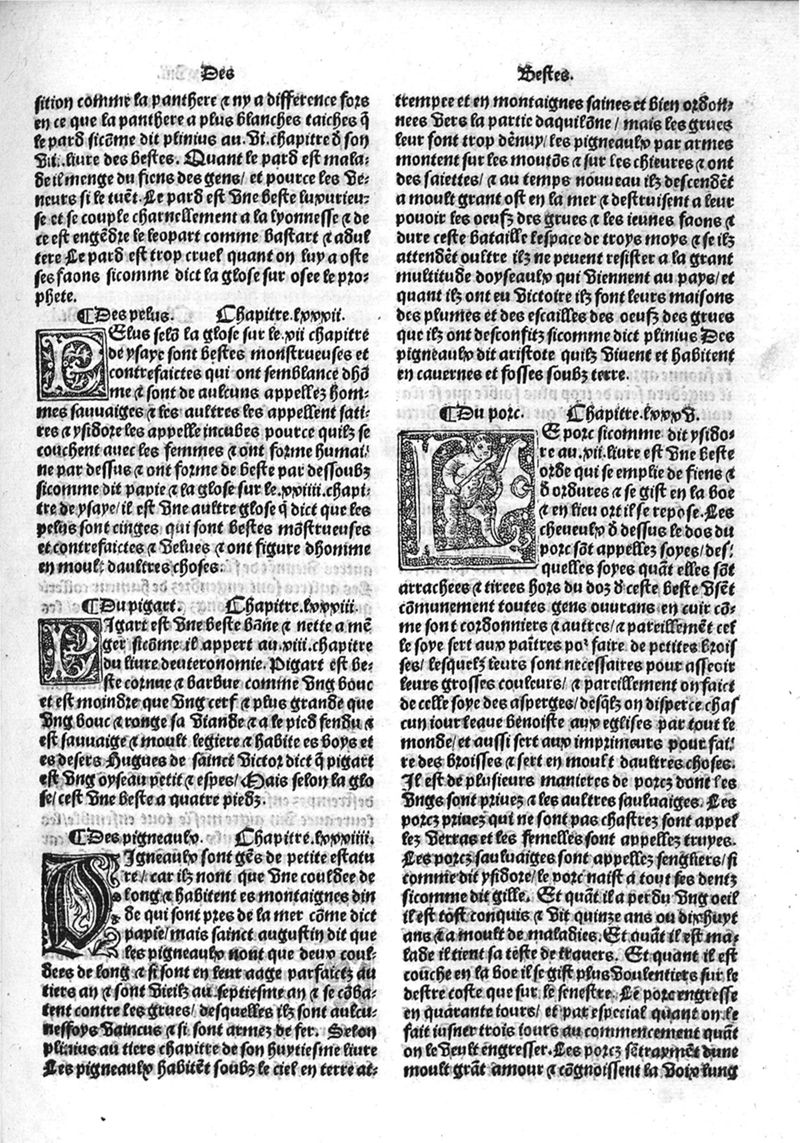 Des
Bestes.
sition comme la panthere & ny a difference fors
en ce que la panthere a plus blanches taiches q̃
le pard sicõme dit plinius au. vi. chapitre d̃ son
vii. livre des bestes. Quant le pard est mala-
de il menge du fiens des gens/ et pource les ve-
neurs si le tuẽt. Le pard est vne beste luxurieu-
se et se couple charnellement a la lyonnesse & de
ce est engẽdre le leopart comme bastart & adul
tere Le pard est trop cruel quant on luy a oste
ses faons sicomme dict la glose sur osee le pro-
phete.
¶Des pelus. Chapitre.lxxxii.
PElus selõ la glose sur le.xii chapitre
de ysaye sont bestes monstrueuses et
contrefaictes qui ont semblance dhõ
me & sont de aulcuns appellez hom-
mes sauuaiges & les aultres les appellent sati-
res & ysidore les appelle incubes pource quilz se
couchent avec les femmes & ont forme humai-
ne par dessus & ont forme de beste par dessoubz
sicomme dit papie & la glose sur le.xxiiii.chapi-
tre de ysaye/ il est vne aultre glose q̃ dict que les
pelus sont cinges qui sont bestes mõstrueuses
et contrefaictes & velues & ont figure dhomme
en moult daultres choses.
¶Du pigart. Chapitre.lxxxiii.
PIgart est vne beste bõne & nette a mẽ
ger sicõme il appert au.xiiii.chapitre
du livre deuteronomie. Pigart est be-
ste cornue & barbue comme vng bouc
et est moindre que vng cerf & plus grande que
vng bouc & ronge sa viande & a le pied fendu &
est sauuaige & moult legiere & habite es boys et
es desers Hugues de sainct victor dict q̃ pigart
est vng oyseau petit & espes/ Mais selon la glo
se/ cest vne beste a quatre piedz.
¶Des pigneaulx. Chapitre.lxxxiiii.
PIgneaulx sont gẽs de petite estatu
re/ car ilz nont que vne couldee de
long & habitent es montaignes din
de qui sont pres de la mer cõme dict
papie/ mais sainct augustin dit que
les pigneaulx nont que deux coul-
dees de long & si sont en leur aage parfaictz au
tiers an & sont vieilz au septiesme an & se cõba-
tent contre les grues/ desquelles ilz sont aulcu-
neffoys vaincus & si sont armez de fer. Selon
plinius au tiers chapitre de son huytiesme livre
Les pigneaulx habitẽt soubz le ciel en terre at-
trempee et en montaignes saines et bien ordon-
nees vers la partie daquilõne/ mais les grues
leur font trop dẽnuy/ les pigneaulx par armes
montent sur les moutõs & sur les chieures & ont
des saiettes/ & au temps nouueau ilz descendẽt
a moult grant ost en la mer & destruisent a leur
pouoir les oeufz des grues & les ieunes faons &
dure ceste bataille lespace de troys moys & se ilz
attendẽt oultre ilz ne peuent resister a la grant
multitude doyseaulx qui viennent au pays/ et
quant ilz ont eu victoire ilz font leurs maisons
des plumes et des escailles des oeufz des grues
que ilz ont desconfitz sicomme dict plinius Des
pigneaulx dit aristote quilz vivent et habitent
en cavernes et fosses soubz terre.
¶Du porc. Chapitre.lxxxv.
LE porc sicomme dit ysido-
re au.xii.livre est vne beste
orde qui se emplie de fiens &
d̃ ordures & se gist en la boe
& en lieu ort il se repose. Les
cheueulx d̃ dessus le dos du
porc sõt appellez soyes/ des-
quelles soyes quãt elles sõt
arrachees & tirees hors du doz d̃ ceste beste vsẽt
cõmunement toutes gens ouurans en cuir cõ-
me sont cordonniers & autres/ & pareillemẽt cel
le soye sert aux paĩtres po' faire de petites brois
ses/ lesquelz leurs sont necessaires pour asseoir
leurs grosses couleurs/ & pareillement on faict
de celle soye des asperges/ dẽsq̃lz on disperce chas
cun jour leaue bẽnoiste aux eglises par tout le
monde/ et aussi sert aux imprimeurs pour fai-
re des broisses & sert en moult daultres choses.
Il est de plusieurs manieres de porcz dont les
vngs sont priuez & les aultres sauluaiges. Les
porcz priuez qui ne sont pas chastrez sont appel
lez verras et les femelles sont appellez truyes.
Les porcz sauluaiges sont appellez sengliers/ si
comme dit ysidore/ le porc naist a tout ses dentz
sicomme dit gille. Et quãt il a perdu vng oeil
il est tost conquis & vit quinze ans ou dixhuyt
ans & a moult de maladies. Et quãt il est ma-
lade il tient sa teste de trauers. Et quant il est
couche en la boe il se gist plus voulentiers sur le
destre coste que sur le senestre. Le porc engresse
en quarante iours/ et par especial quant on le
fait iusner trois iours au commencement quãt
on le veult engresser. Les porcz sẽtrayment dune
moult grãt amour & cõgnoissent la voix lung